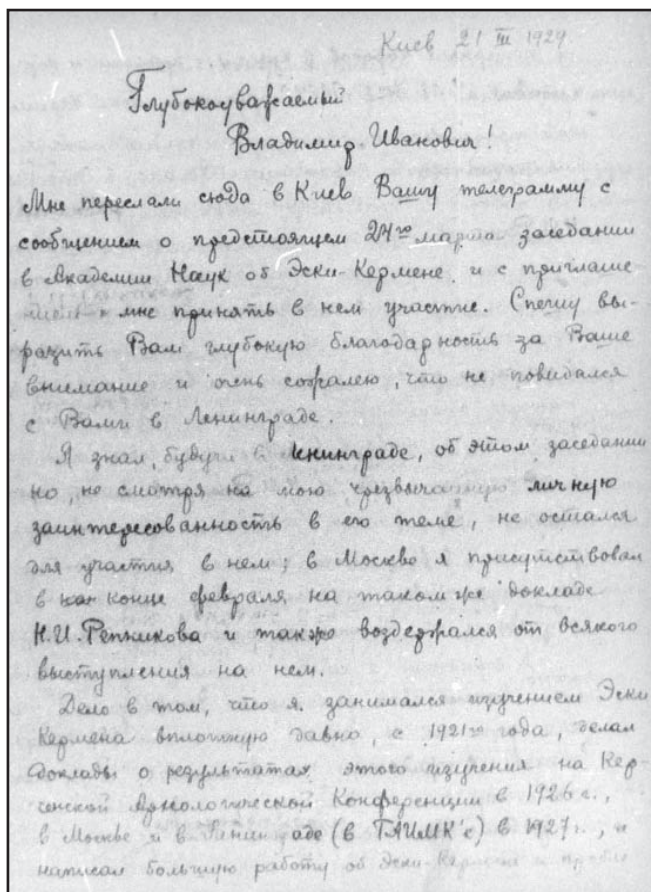 Киев 21 III 1929
Глубокоуважаемый
Владимир Иванович!
Мне переслали сюда в Киев Вашу телеграмму с
сообщением о предстоящем 24го марта заседании
в Академии Наук об Эски-Кермене и с приглаше
нием мне принять в нем участие. Спешу вы-
разить Вам глубокую благодарность за Ваше
внимание и очень сожалею, что не повидался
с Вами в Ленинграде.
Я знал, будучи в Ленинграде, об этом заседании
но, не смотря на мою чрезвычайную личную
заинтересованность в его теме, не остался
для участия в нем; в Москве я присутствовал
в конце февраля на таком же докладе
Н.И. Репникова и также воздержался от всякого
выступления на нем.
Дело в том, что я занимался изучением Эски
Кермена вплотную давно, с 1921го года, делал
доклады о результатах этого изучения на Кер-
ченской Археологической Конференции в 1926 г.,
в Москве и в Ленинграде (в ГАИМК'е) в 1927 г., и
написал большую работу об Эски-Кермене и пробле